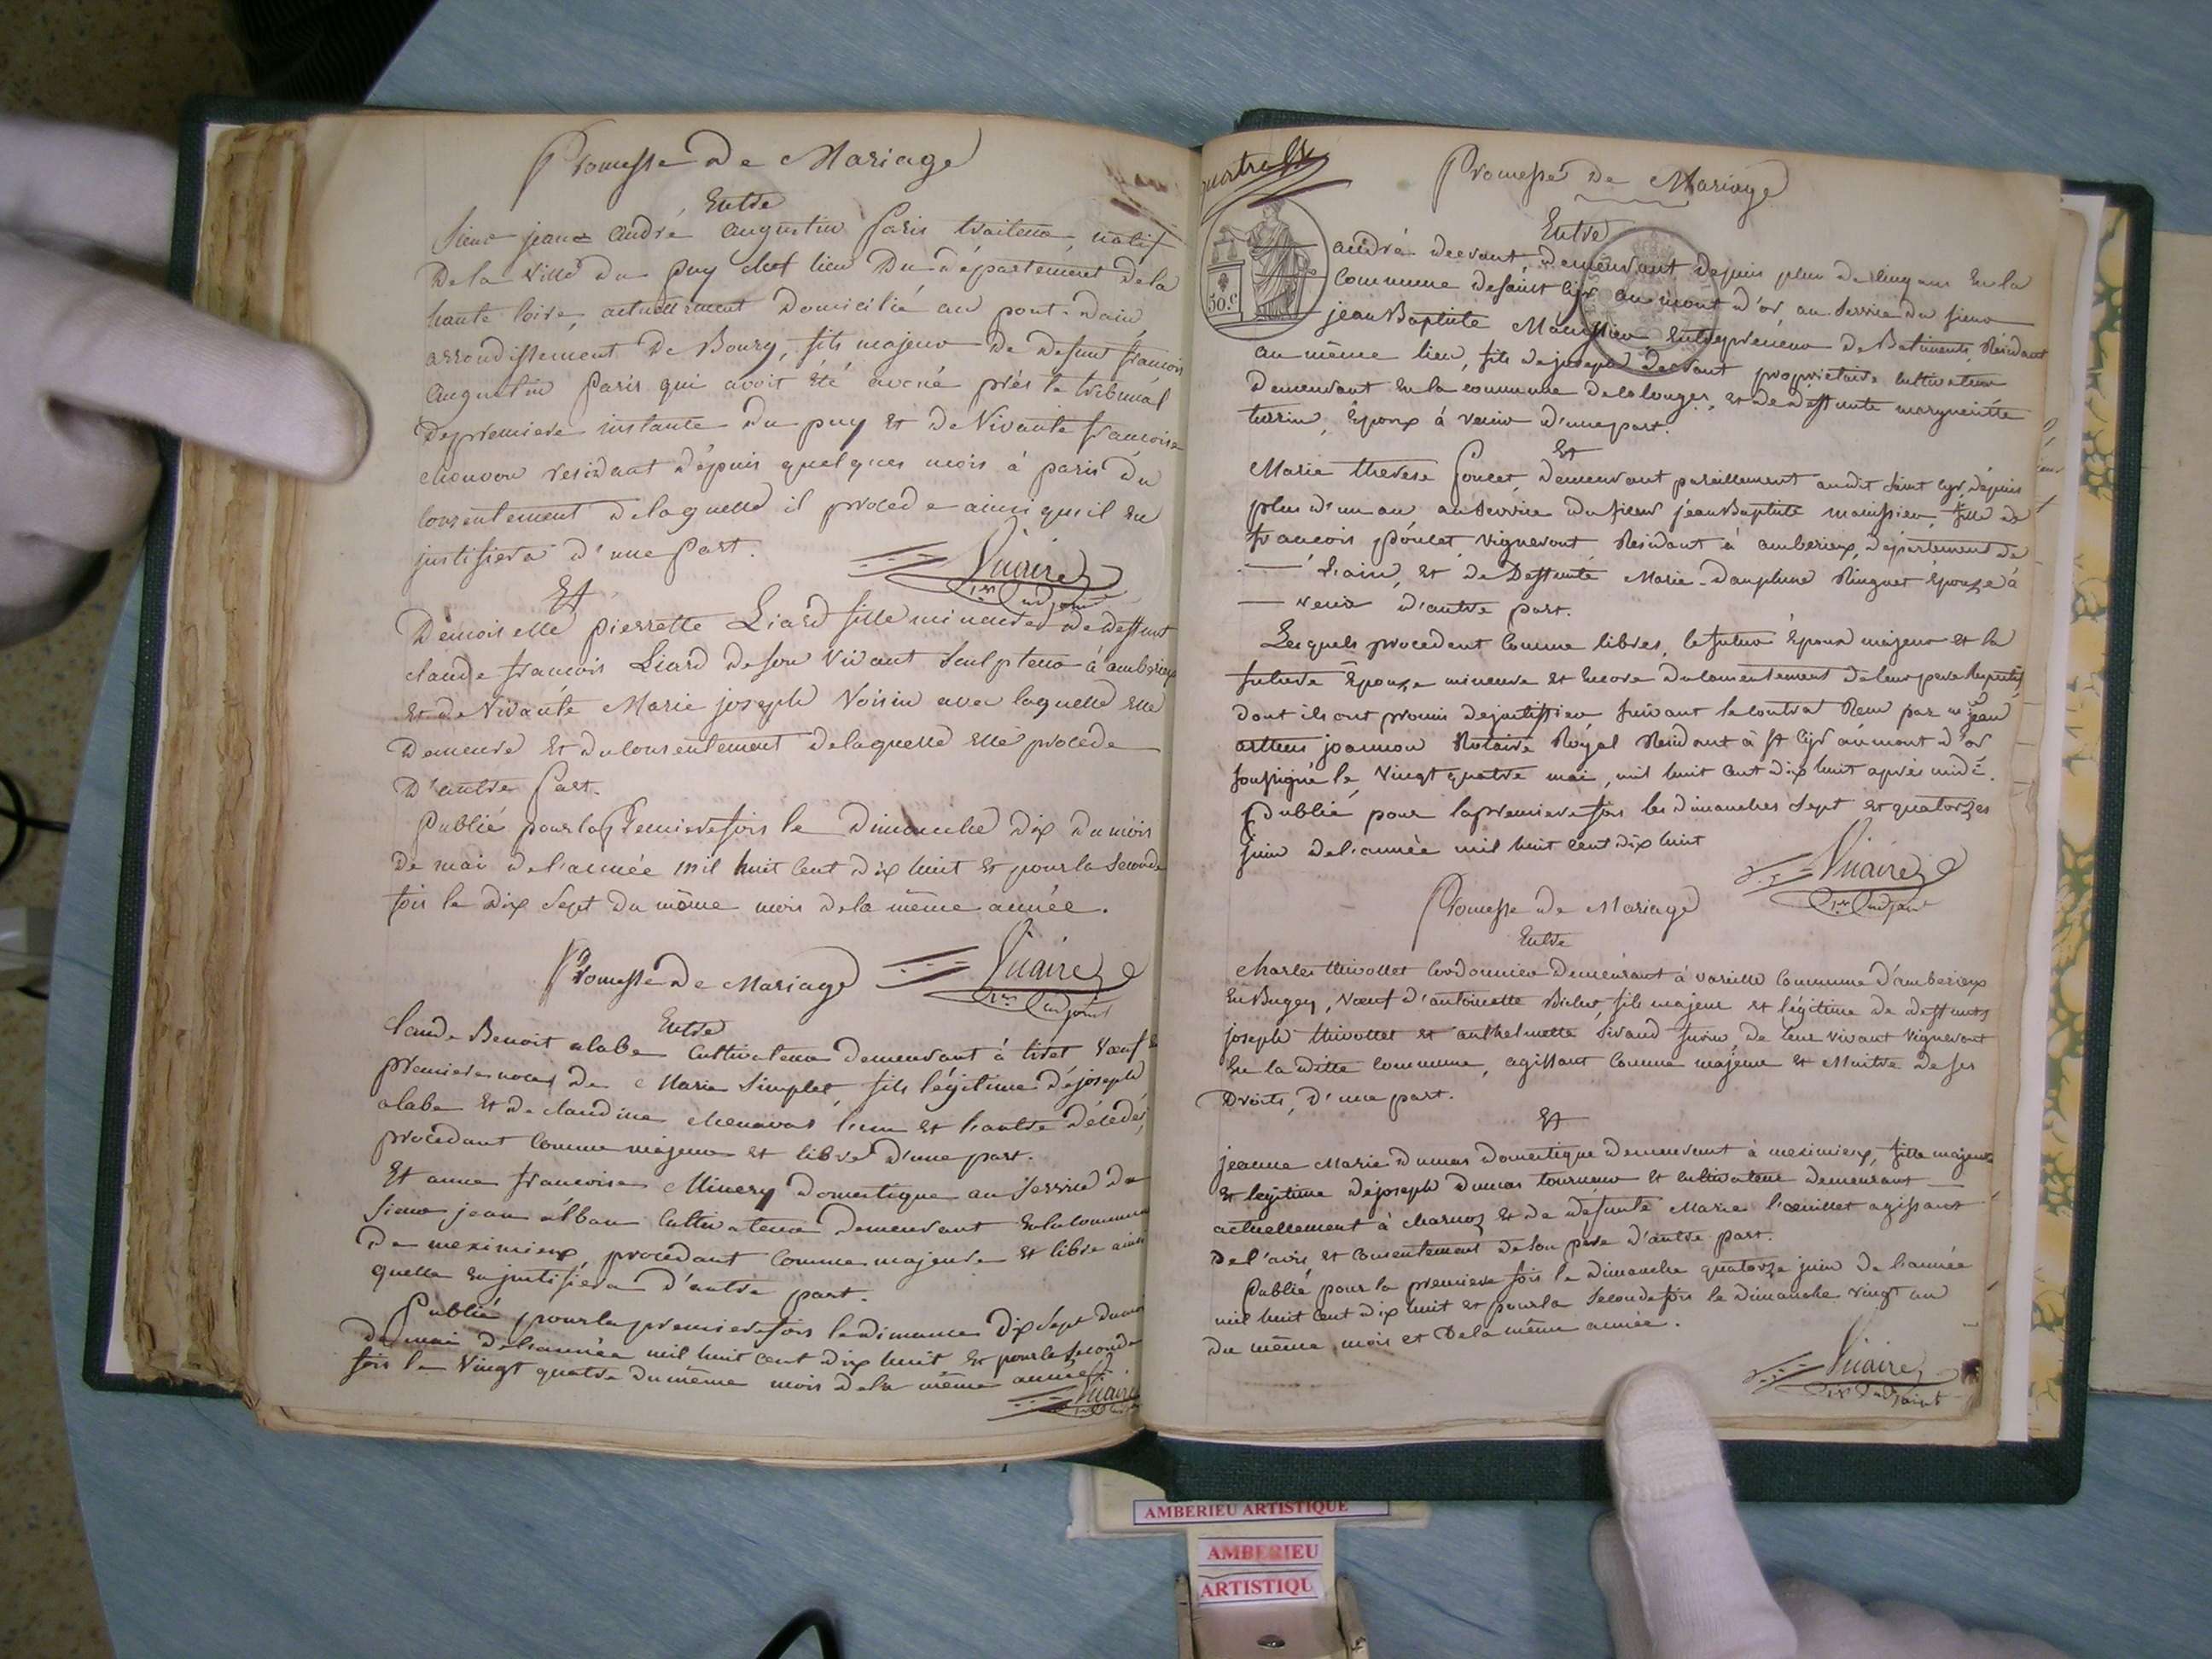 Promesse De Mariage
Entre
Sieur jean andré augustin Paris traiteur, natif
De la ville du puy chef lieu Du Département de la
haute loire, actuellement Domicilié au pont-dain
arrondissement De Bourg, fils majeur De defunt francois
augustin Paris qui avoit été avoué près le tribunal
de premiere instance du puy Et de vivante francoise
residant dépuis quelques mois à paris du
consentement delaquelle il procede ainsi qu'il en
justifiera d'une Part.
Vicaire
1er adjoint
Et
Demoiselle pierrette Liard fille mineure de deffunt
claude francois Liard de son vivant sculpteur à amberieux
Et de vivante Marie joseph Voisin avec laquelle elle
Demeure Et du consentement delaquelle elle procède
D'autre Part.
Publié pour la Premiere fois le Dimanche dix du mois
De mai de l'année mil huit cent dix huit Et pour la seconde
fois le dix sept du même mois de la même année.
Vicaire
1er adjoint
Promesse De Mariage
Entre
Claude Benoit alabe Cultivateur demeurant à loiet Voeuf en
premiere noces de Marie Simplet, fils légitime de joseph
alabe Et De claudine chenavas l'un Et l'autre décédés,
procédant Comme majeur et libre d'une part.
Et anne francoise Minery Domestique au service du
sieur jean alban Cultivateur demeurant En la commune
De meximieux, procedant Comme majeure Et libre ainsi
quelle en justifiera d'autre part.
Publié pour la premiere fois le dimance Dix sept du mois
de mai de l'année mil huit cent dix huit Et pour la seconde
fois le vingt quatre du même mois de la même année.
Vicaire
Promesse De Mariage
Entre
50.c
andré demeurant depuis plus de cinq ans En la
Commune de saint cyr au mont d'or au service du sieur
jean Baptiste Entrepreneur De Batiments, Résidant
au même lieu, fils de joseph propriétaire cultivateur
Demeurant En la commune et de deffunte margueritte
Epoux à venir d'une part.
Et
Marie therese Poncet demeurant pareillement audit saint cyr, dépuis
plus d'un an au service du sieur jean Baptiste fille de
francois Poncet, vigneront, Résidant à amberieux, département de
l'ain, Et de Deffunte Marie-dauphine Ringuet Épouze à
venir d'autre part.
Lesquels procedent Comme libres, le futur Epoux majeur et la
future Epouze mineure et Encore du consentement de leur pere Respectifs
dont ils ont promis de justiffier suivant le contrat Reçu par me jean
joannon Notaire Royal Résidant à st cyr au mont d'or
soussigné le vingt quatre mai, mil huit cent dix huit après midi.
Publié pour la premiere fois les dimanches sept et quatorzes
juin de l'année mil huit cent dix huit
Vicaire
1er adjoint
Promesse De Mariage
Entre
charles thivollet Cordonnier demeurant à vareille Commune d'amberieux
En Bugey, Voeuf d'antoinette fils majeur et légitime de deffunts
joseph thivollet et anthelmette Sivand de leur vivant vigneront
En la ditte Commune, agissant Comme majeur Et Maitre de ses
Droits, d'une part.
Et
jeanne Marie dumas domestique demeurant à meximieux, fille majeure
Et légitime de joseph dumas tourneur et cultivateur demeurant
actuellement à charnoz Et de défunte Marie l'oeuillet agissant
De l'avis et Consentement de son père d'autre part.
Publié pour la premiere fois le dimanche quatorze juin de l'année
mil huit cent dix huit et pour la seconde fois le dimanche vingt un
du même mois et De la même année.
Vicaire
1er adjoint
AMBERIEU ARTISTIQUE
AMBERIEU
ARTISTIQU